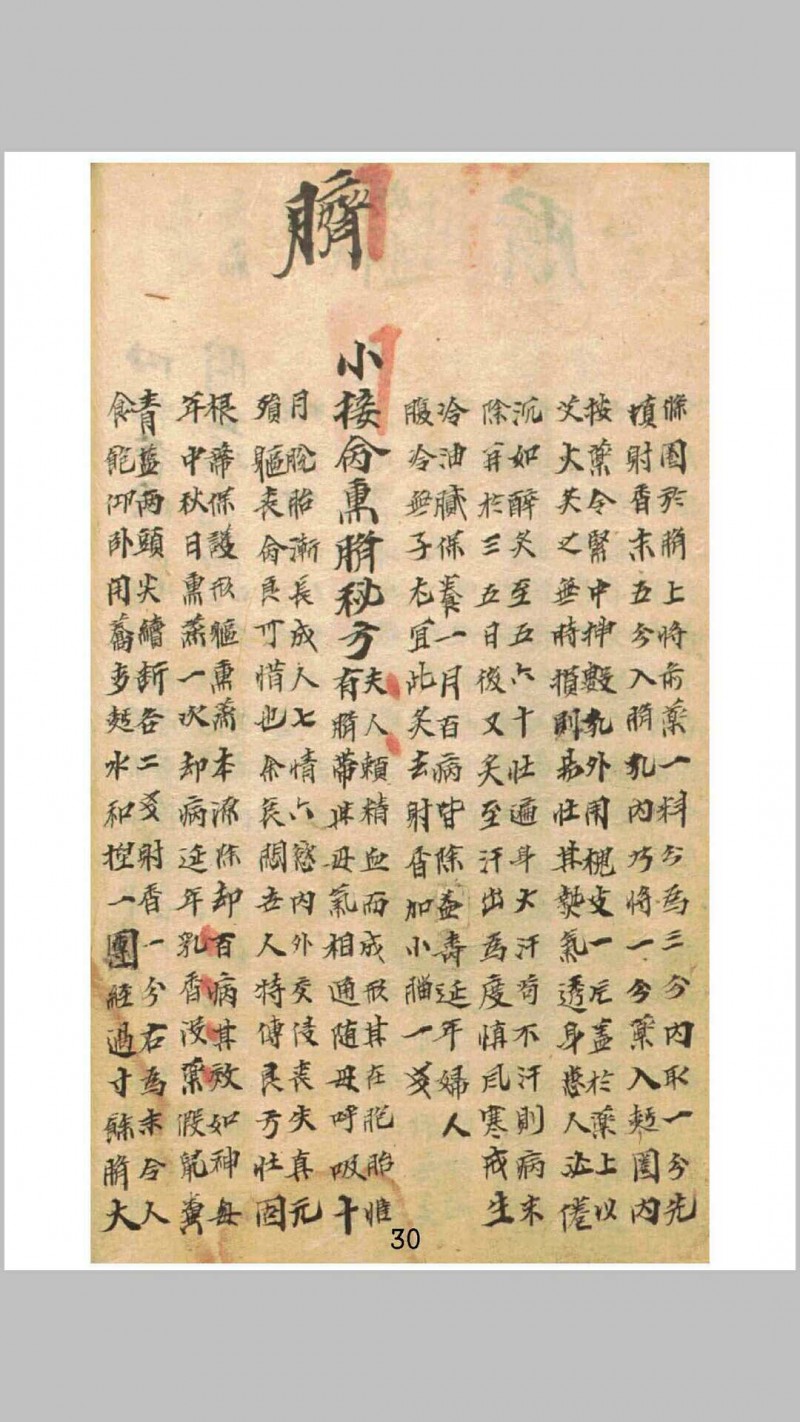 臍
條圍於臍上將前藥一料分為三分內取一分先
填射香末五分入臍孔內乃將一分藥入麵圈內
按藥令緊中挿數孔外用槐皮一片盖於藥上以
艾火炙之無時損則易壯其熱氣透身患人必倦
沉如醉炙至五六十壯遍身大汗苟不汗則病未
除再於三五日後又炙至汗出為度慎風寒戒生
冷油膩保養一月百病皆除益壽延年婦人
腹冷無子尤宜此炙去射香加小腦一戔
小接命熏臍秘方
夫人賴精血而成形其在胞胎惟
有臍帶与母氣相通随母呼吸十
月脫胎漸長成人七情六慾內外交侵丧失真元
殞軀丧命良可惜也余哀憫世人特傳良方壯固
根蒂保護形軀熏蒸本源除却百病其效如神每
年中秋日熏蒸一次却病延年乳香沒藥假鼠糞
青盐兩頭尖續斷各二戔射香一分右為末令人
食飽仰卧用蕎麥麵水和捏一團經過寸餘臍大
30